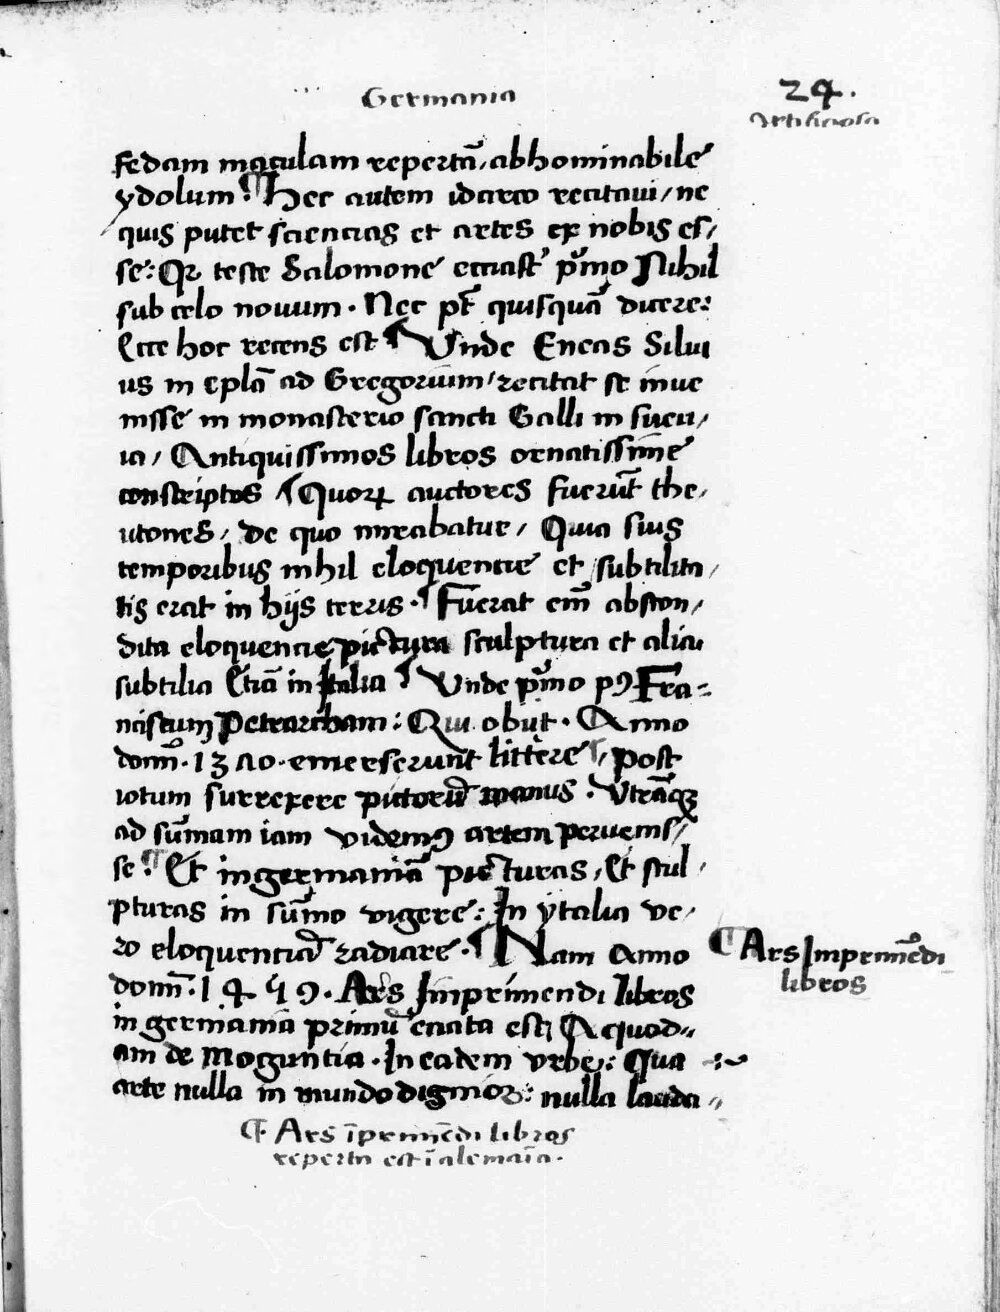 Germania
24.
Artificiosa
fedam maculam repertā, abhominabile
ydolum. ¶ Hec autem idcirco recitavi / ne
quis putet sciencias et artes ex nobis es/
se: Qꝛ teste Salomone eccīast' pͥmo Nihil
sub celo novum. Nec pt̄ quisquā dicere:
Ecce hoc recens est ¶ Vnde Eneas Silvi
us in ep̄la ad Gregorium / recitat se inve
nisse in monasterio sancti Galli in suevi/
ia / Antiquissimos libros ornatissīme
conscriptos ¶ Quoꝝ auctores fuerūt the/
utones / de quo mirabatur / Quia suis
temporibus nihil eloquencie et subtilita/
tis erat in hijs terris. ¶ Fuerat em̄ abscon/
dita eloquencie pictura sculptura et alia
subtilia Etiā in Italia ¶ Vnde pͥmo pꝰ Fra-
nciscum Petrarcham: Qui obijt. Anno
domͥ. 1370. emerserunt littere, post
iotum surrexere pictorū manus. Vtrāqꝫ
ad sūmam iam videmꝰ artem pervenis/
se. ¶ Et in germaniā picturas, Et scul/
pturas in sūmo vigere: In ytalia ve/
ro eloquenciā radiare. ¶ Nam Anno
domͥ. 1459. Ars Imprimendi libros
in germania primū enata est; A quod-
am de Moguntia. In eadem vrbe: Qua
arte nulla in mundo dignioꝝ: nulla lauda/
¶ Ars Imprimēdi
libros
¶. Ars īprimēdi libros
reperta est ī alemaīa.